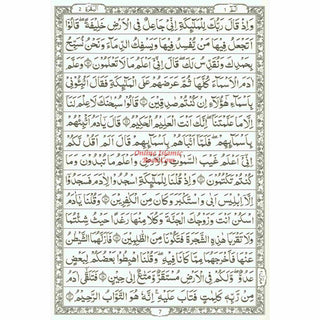 البقرة ٢
الٓمّٓ ١
وَاِذْ قَالَ رَبُّكَ لِلْمَلٰٓئِكَةِ اِنِّيْ جَاعِلٌ فِي الْاَرْضِ خَلِيْفَةً ؕ قَالُوْٓا
اَتَجْعَلُ فِيْهَا مَنْ يُّفْسِدُ فِيْهَا وَيَسْفِكُ الدِّمَآءَ ۚ وَنَحْنُ نُسَبِّحُ
بِحَمْدِكَ وَنُقَدِّسُ لَكَ ؕ قَالَ اِنِّيْٓ اَعْلَمُ مَا لَا تَعْلَمُوْنَ ۝ وَعَلَّمَ
اٰدَمَ الْاَسْمَآءَ كُلَّهَا ثُمَّ عَرَضَهُمْ عَلَى الْمَلٰٓئِكَةِ ۙ فَقَالَ اَنْۢبِـُٔوْنِيْ
بِاَسْمَآءِ هٰٓؤُلَآءِ اِنْ كُنْتُمْ صٰدِقِيْنَ ۝ قَالُوْا سُبْحٰنَكَ لَا عِلْمَ لَنَآ
اِلَّا مَا عَلَّمْتَنَا ؕ اِنَّكَ اَنْتَ الْعَلِيْمُ الْحَكِيْمُ ۝ قَالَ يٰٓاٰدَمُ اَنْۢبِئْهُمْ
بِاَسْمَآئِهِمْ ۚ فَلَمَّآ اَنْۢبَاَهُمْ بِاَسْمَآئِهِمْ ۙ قَالَ اَلَمْ اَقُلْ لَّكُمْ
Online Islamic
اِنِّيْٓ اَعْلَمُ غَيْبَ السَّمٰوٰتِ وَالْاَرْضِ ۙ وَاَعْلَمُ مَا تُبْدُوْنَ وَمَا
كُنْتُمْ تَكْتُمُوْنَ ۝ وَاِذْ قُلْنَا لِلْمَلٰٓئِكَةِ اسْجُدُوْا لِاٰدَمَ فَسَجَدُوْٓا
اِلَّآ اِبْلِيْسَ ؕ اَبٰى وَاسْتَكْبَرَ ۫ وَكَانَ مِنَ الْكٰفِرِيْنَ ۝ وَقُلْنَا يٰٓاٰدَمُ
اسْكُنْ اَنْتَ وَزَوْجُكَ الْجَنَّةَ وَكُلَا مِنْهَا رَغَدًا حَيْثُ شِئْتُمَا ۪
وَلَا تَقْرَبَا هٰذِهِ الشَّجَرَةَ فَتَكُوْنَا مِنَ الظّٰلِمِيْنَ ۝ فَاَزَلَّهُمَا الشَّيْطٰنُ
عَنْهَا فَاَخْرَجَهُمَا مِمَّا كَانَا فِيْهِ ۪ وَقُلْنَا اهْبِطُوْا بَعْضُكُمْ لِبَعْضٍ
عَدُوٌّ ۚ وَلَكُمْ فِي الْاَرْضِ مُسْتَقَرٌّ وَّمَتَاعٌ اِلٰى حِيْنٍ ۝ فَتَلَقّٰٓى اٰدَمُ
مِنْ رَّبِّهٖ كَلِمٰتٍ فَتَابَ عَلَيْهِ ؕ اِنَّهٗ هُوَ التَّوَّابُ الرَّحِيْمُ ۝
7